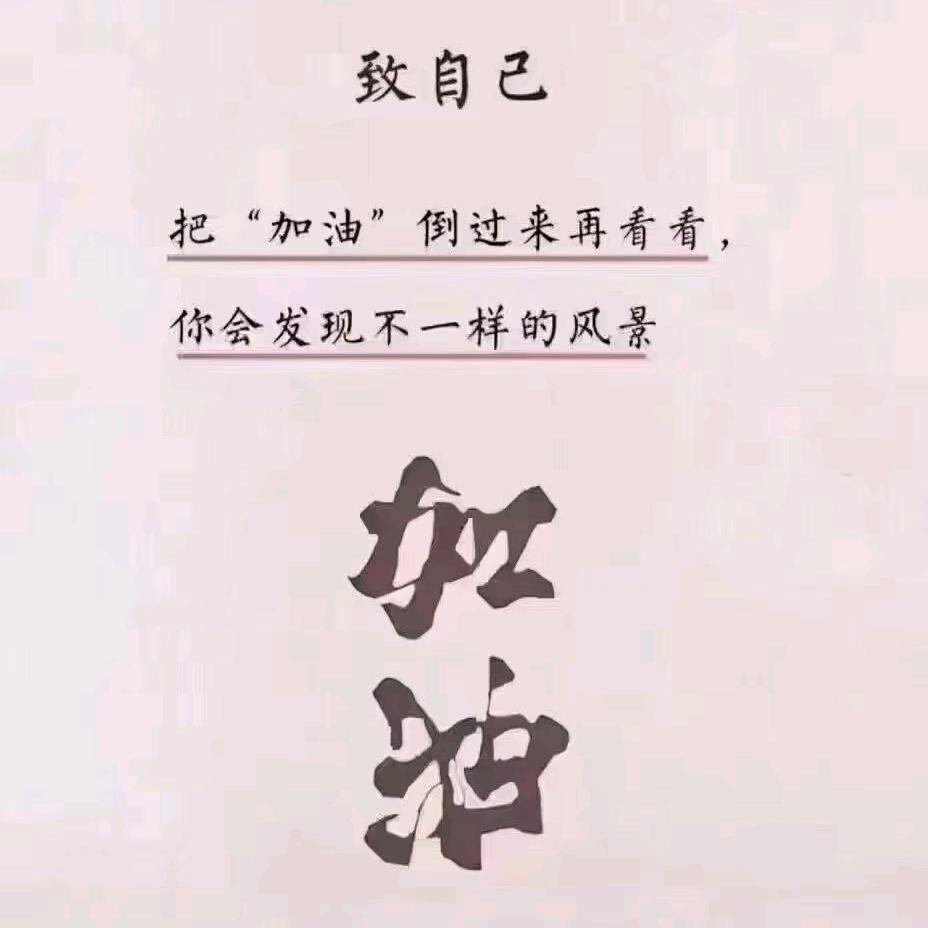 致自己
把“加油”倒过来再看看，
你会发现不一样的风景
加
油